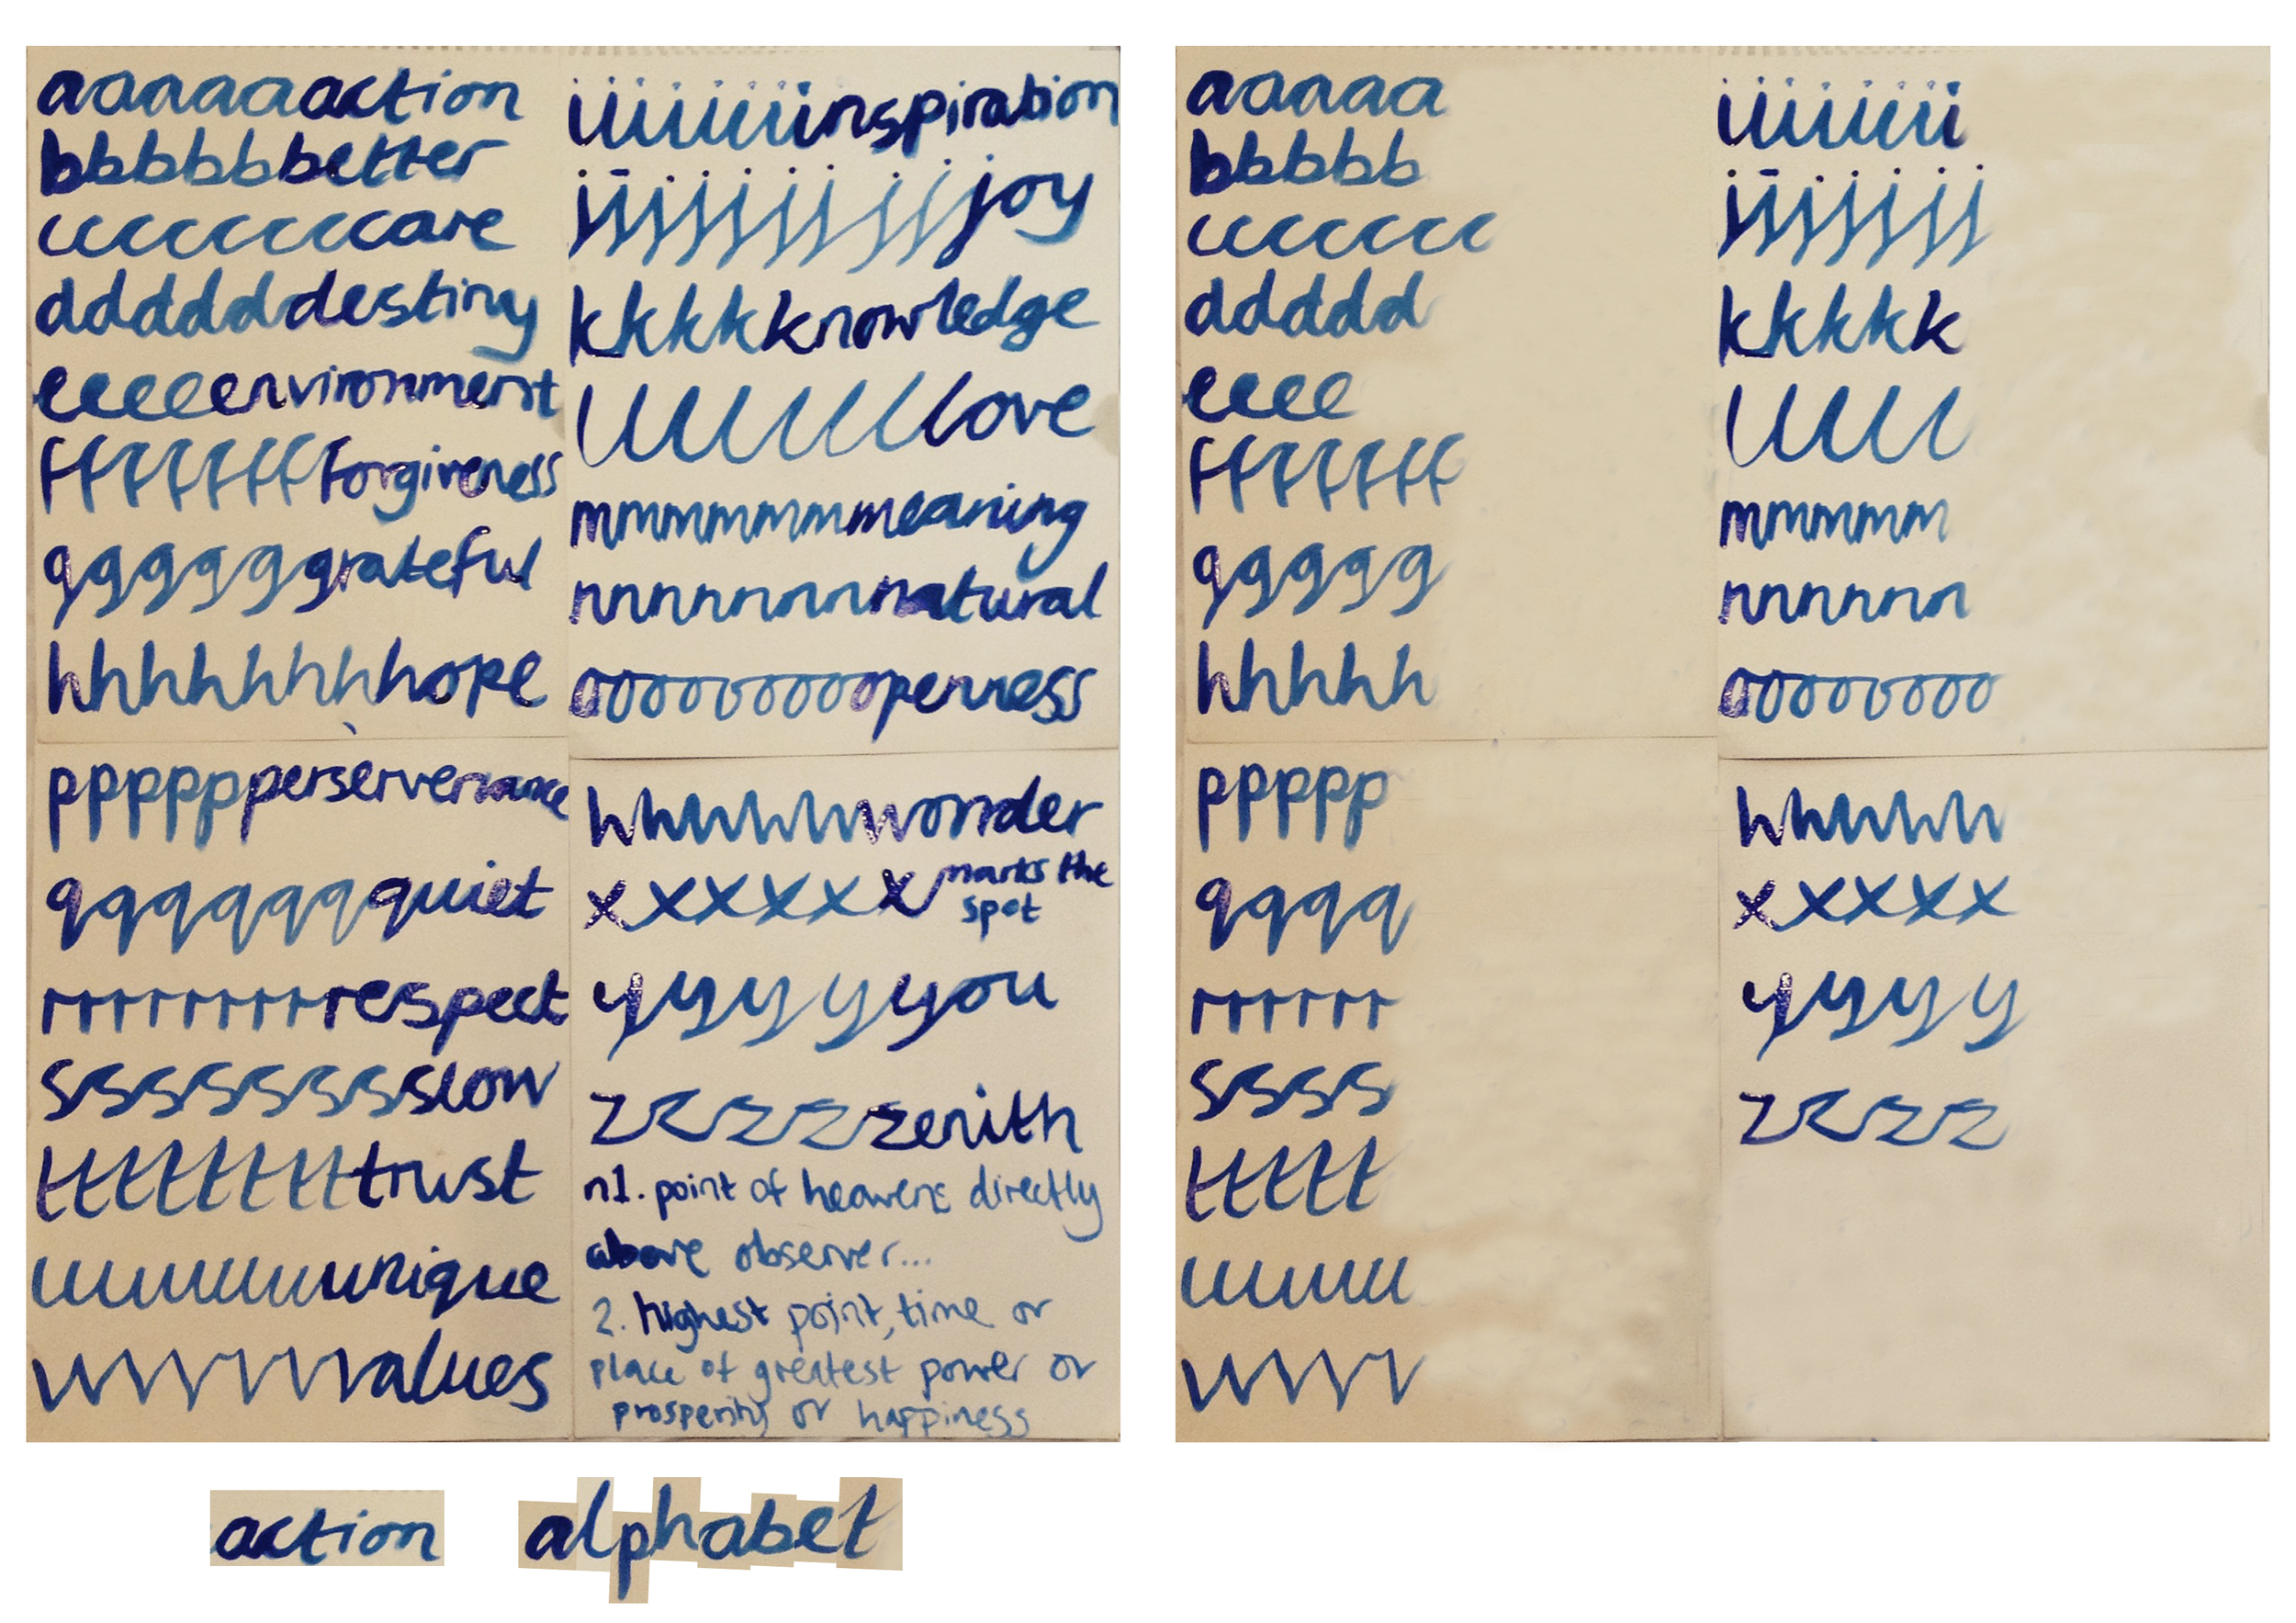 aaaaaaction
bbbbbbetter
ccccccccare
dddddestiny
eeeeenvironment
ffffffffforgiveness
gggggrateful
hhhhhhhhope
iiiiiiinspiration
jjjjjjjjjoy
kkkkknowledge
llllllllove
mmmmmmmeaning
nnnnnnnnatural
ooooooooopenness
pppppperservernance
qqqqqqquiet
rrrrrrrrrespect
ssssssssslow
ttttttttttrust
uuuuuuunique
vvvvvvvalues
wwwwwwonder
xxxxxx marks the
spot
yyyyyou
zzzzzenith
n1. point of heavens directly
above observer...
2. highest point, time or
place of greatest power or
prosperity or happiness
aaaaa
bbbbb
ccccccc
ddddd
eeee
fffffff
ggggg
hhhhh
iiiiii
jjjjjjj
kkkkk
lllll
mmmmm
nnnnnn
oooooooo
ppppp
qqqq
rrrrrr
sssss
ttttt
uuuuu
vvvvv
wwwww
xxxxx
yyyy
zzzz
action
alphabet